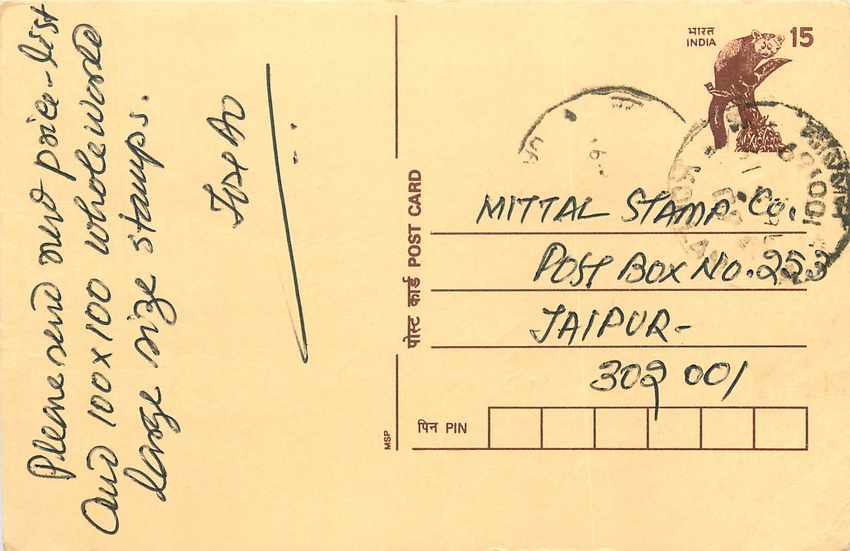 Please send next price-list
and 100x100 whole world
large size stamps.
भारत
INDIA
15
पोस्ट कार्ड POST CARD
MITTAL STAMP Co.
POST BOX No. 253
JAIPUR-
302 001
पिन PIN
MSP